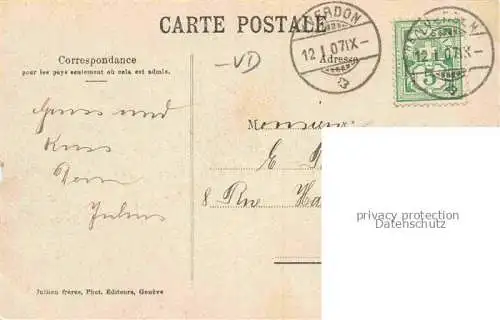 CARTE POSTALE
Correspondance
pour les pays seulement où cela est admis.
VERDON
12 I 07 IX -
YVERDON
12 I 07 IX -
Adresse
- VD
5
Gruss und
Kuss
Dein
Julius
Monsieur
E
8 Rue Ha
privacy protection
Datenschutz
Jullien frères, Phot. Editeurs, Genève